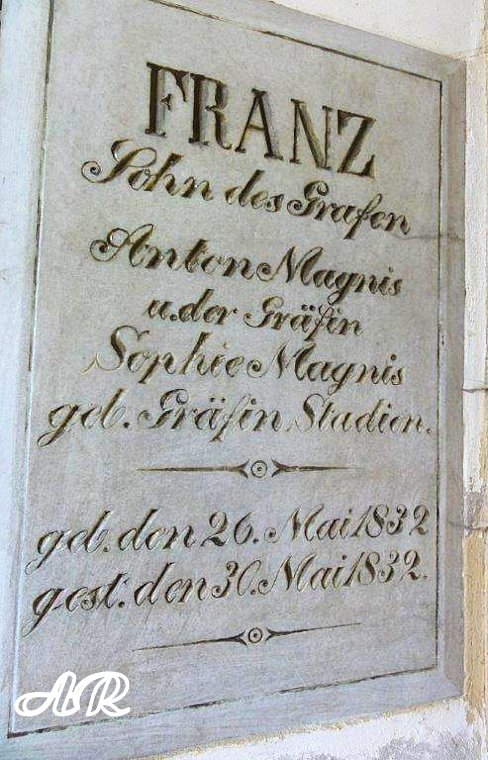 FRANZ
Sohn des Grafen
Anton Magnis
u. der Gräfin
Sophie Magnis
geb. Gräfin Stadion.
geb. den 26. Mai 1832
gest. den 30. Mai 1832.
AR